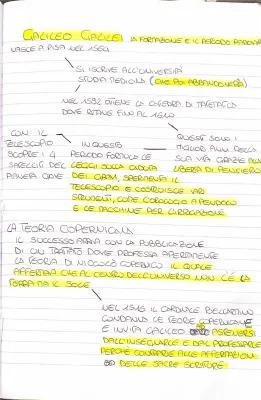 GALILEO GALILEI LA FORMAZIONE E IL PERIODO PADOVANO
NASCE A PISA NEL 1564
SI ISCRIVE ALL'UNIVERSITÀ
STUDIA MEDICINA (CHE POI ABBANDONERÀ)
NEL 1592 OTTIENE LA CATEDRA DI MATEMATICA
DOVE RESTA FINO AL 1610
QUESTI SONO I
MIGLIORI ANNI DELLA
SUA VITA GRAZIE ALLA
LIBERTÀ DI PENSIERO
IN QUESTO
PERIODO FORMULA LE
LEGGI SULLA CADUTA
DEI GRAVI, SPERIMENTA IL
TELESCOPIO E COSTRUISCE VARI
STRUMENTI, COME L'OROLOGIO A PENDOLO
E LE MACCHINE PER L'IRRIGAZIONE
CON IL
TELESCOPIO
SCOPRE I 4
SATELLITI DEL
PIANETA GIOVE
LA TEORIA COPERNICANA
IL SUCCESSO ARRIVA CON LA PUBBLICAZIONE
DI UN TRATTATO DOVE PROFESSA APERTAMENTE
LA TEORIA DI NICOLÒ COPERNICO IL QUALE
AFFERMAVA CHE AL CENTRO DELL'UNIVERSO NON C'È LA
TERRA MA IL SOLE
NEL 1616 IL CARDINALE BELLARMINO
CONDANNA LE TEORIE COPERNICANE
E INVITA GALILEO AD ASTENERSI
DALL'INSEGNARLE E DAL PROFESSARLE
PERCHÉ CONTRARIE ALLE AFFERMAZIONI
DELLE SACRE SCRITTURE